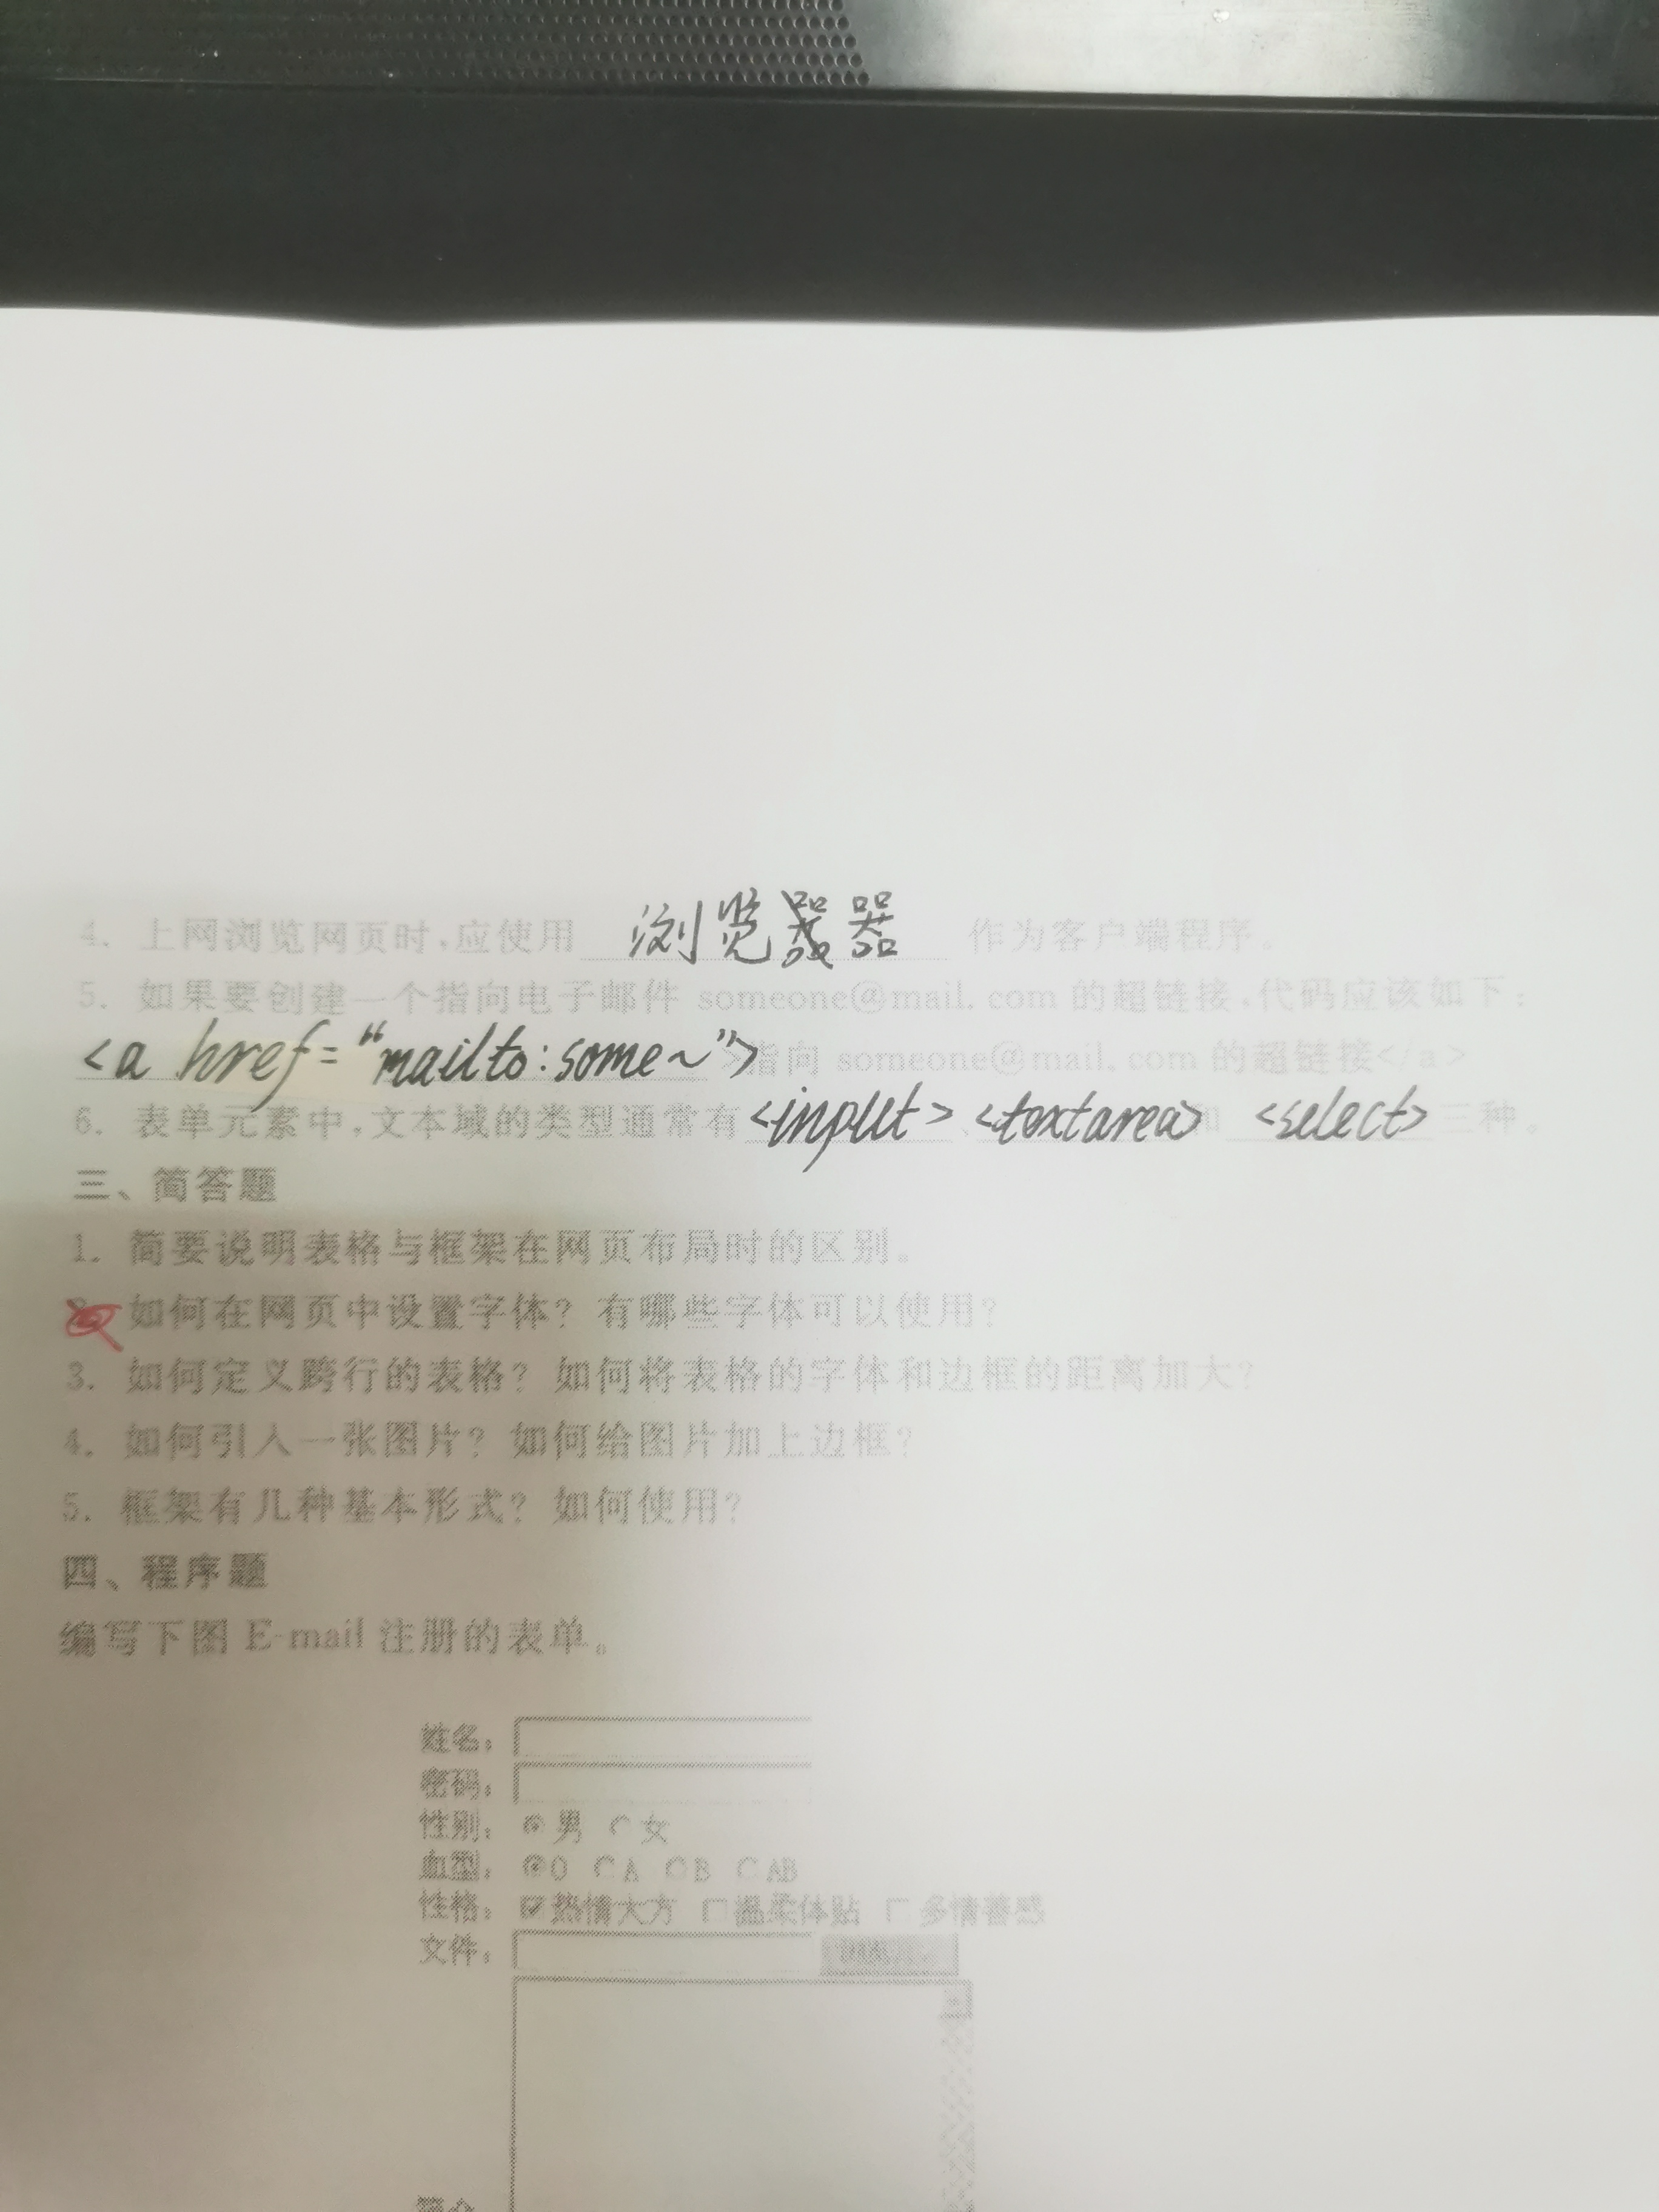 4. 上网浏览网页时,应使用 浏览器 作为客户端程序。
5. 如果要创建一个指向电子邮件 someone@mail.com 的超链接,代码应该如下:
<a href="mailto:some~">指向 someone@mail.com 的超链接</a>
6. 表单元素中,文本域的类型通常有 <input> 、 <textarea> 和 <select> 三种。
三、简答题
1. 简要说明表格与框架在网页布局时的区别。
2. 如何在网页中设置字体? 有哪些字体可以使用?
3. 如何定义跨行的表格? 如何将表格的字体和边框的距离加大?
4. 如何引入一张图片? 如何给图片加上边框?
5. 框架有几种基本形式? 如何使用?
四、程序题
编写下图 E-mail 注册的表单。
姓名:
密码:
性别: 男 女
血型: O A B AB
性格: 热情大方 温柔体贴 多情善感
文件: